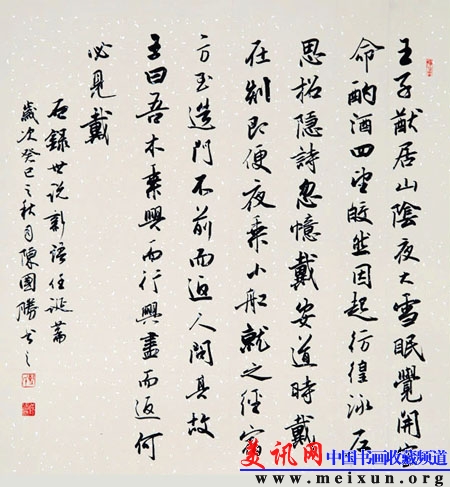 王子猷居山陰夜大雪眠覺開室
命酌酒四望皎然因起彷徨詠左
思招隱詩忽憶戴安道時戴
在剡即便夜乘小船就之經宿
方至造門不前而返人問其故
王曰吾本乘興而行興盡而返何
必見戴
右錄世說新語任誕篇
歲次癸巳之秋月陳國勝書之
美讯网 中国书画收藏频道
www.meixun.org